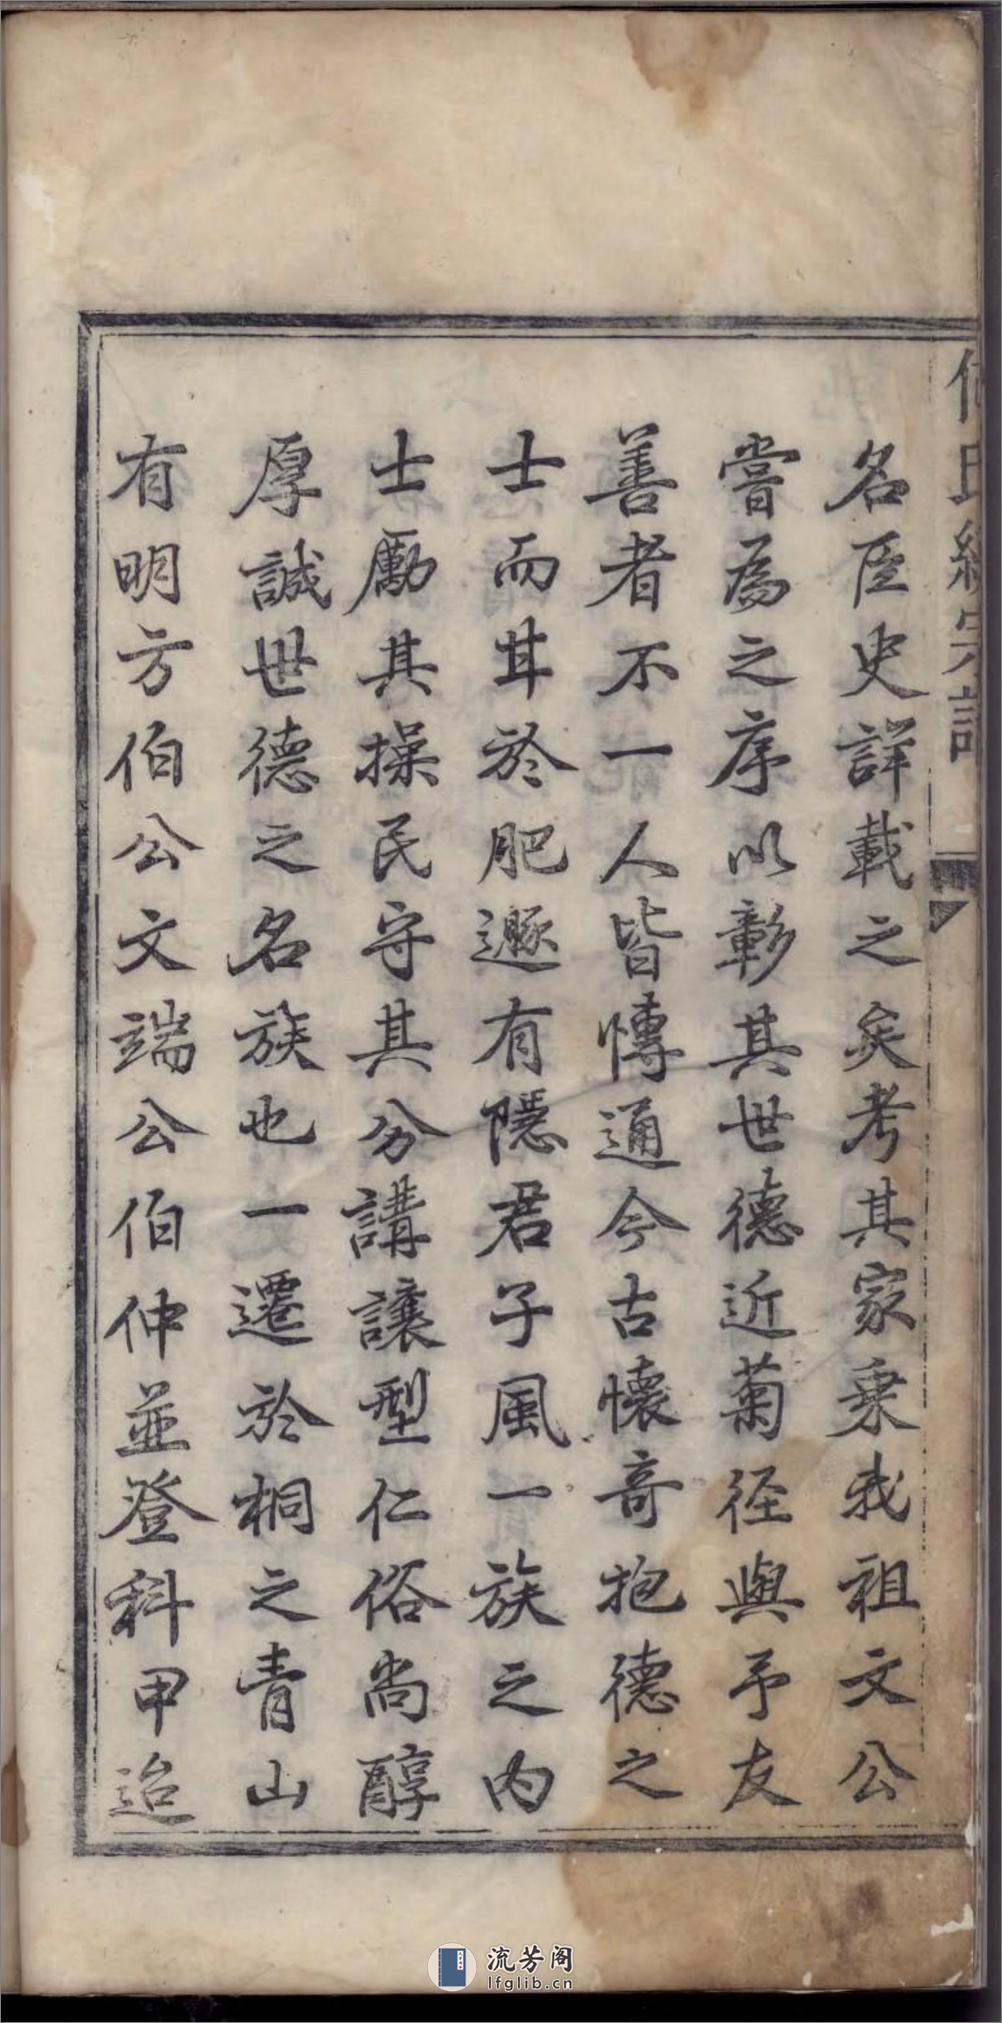 氏總宗譜
名臣史詳載之矣考其家乘我祖文公
嘗為之序以彰其世德近菊徑與予友
善者不一人皆博通今古懷奇抱德之
士而甘於肥遯有隱君子風一族之內
士勵其操民守其分講讓型仁俗尚醇
厚誠世德之名族也一遷於桐之青山
有明方伯公文端公伯仲並登科甲迨
流芳阁
lfglib.cn